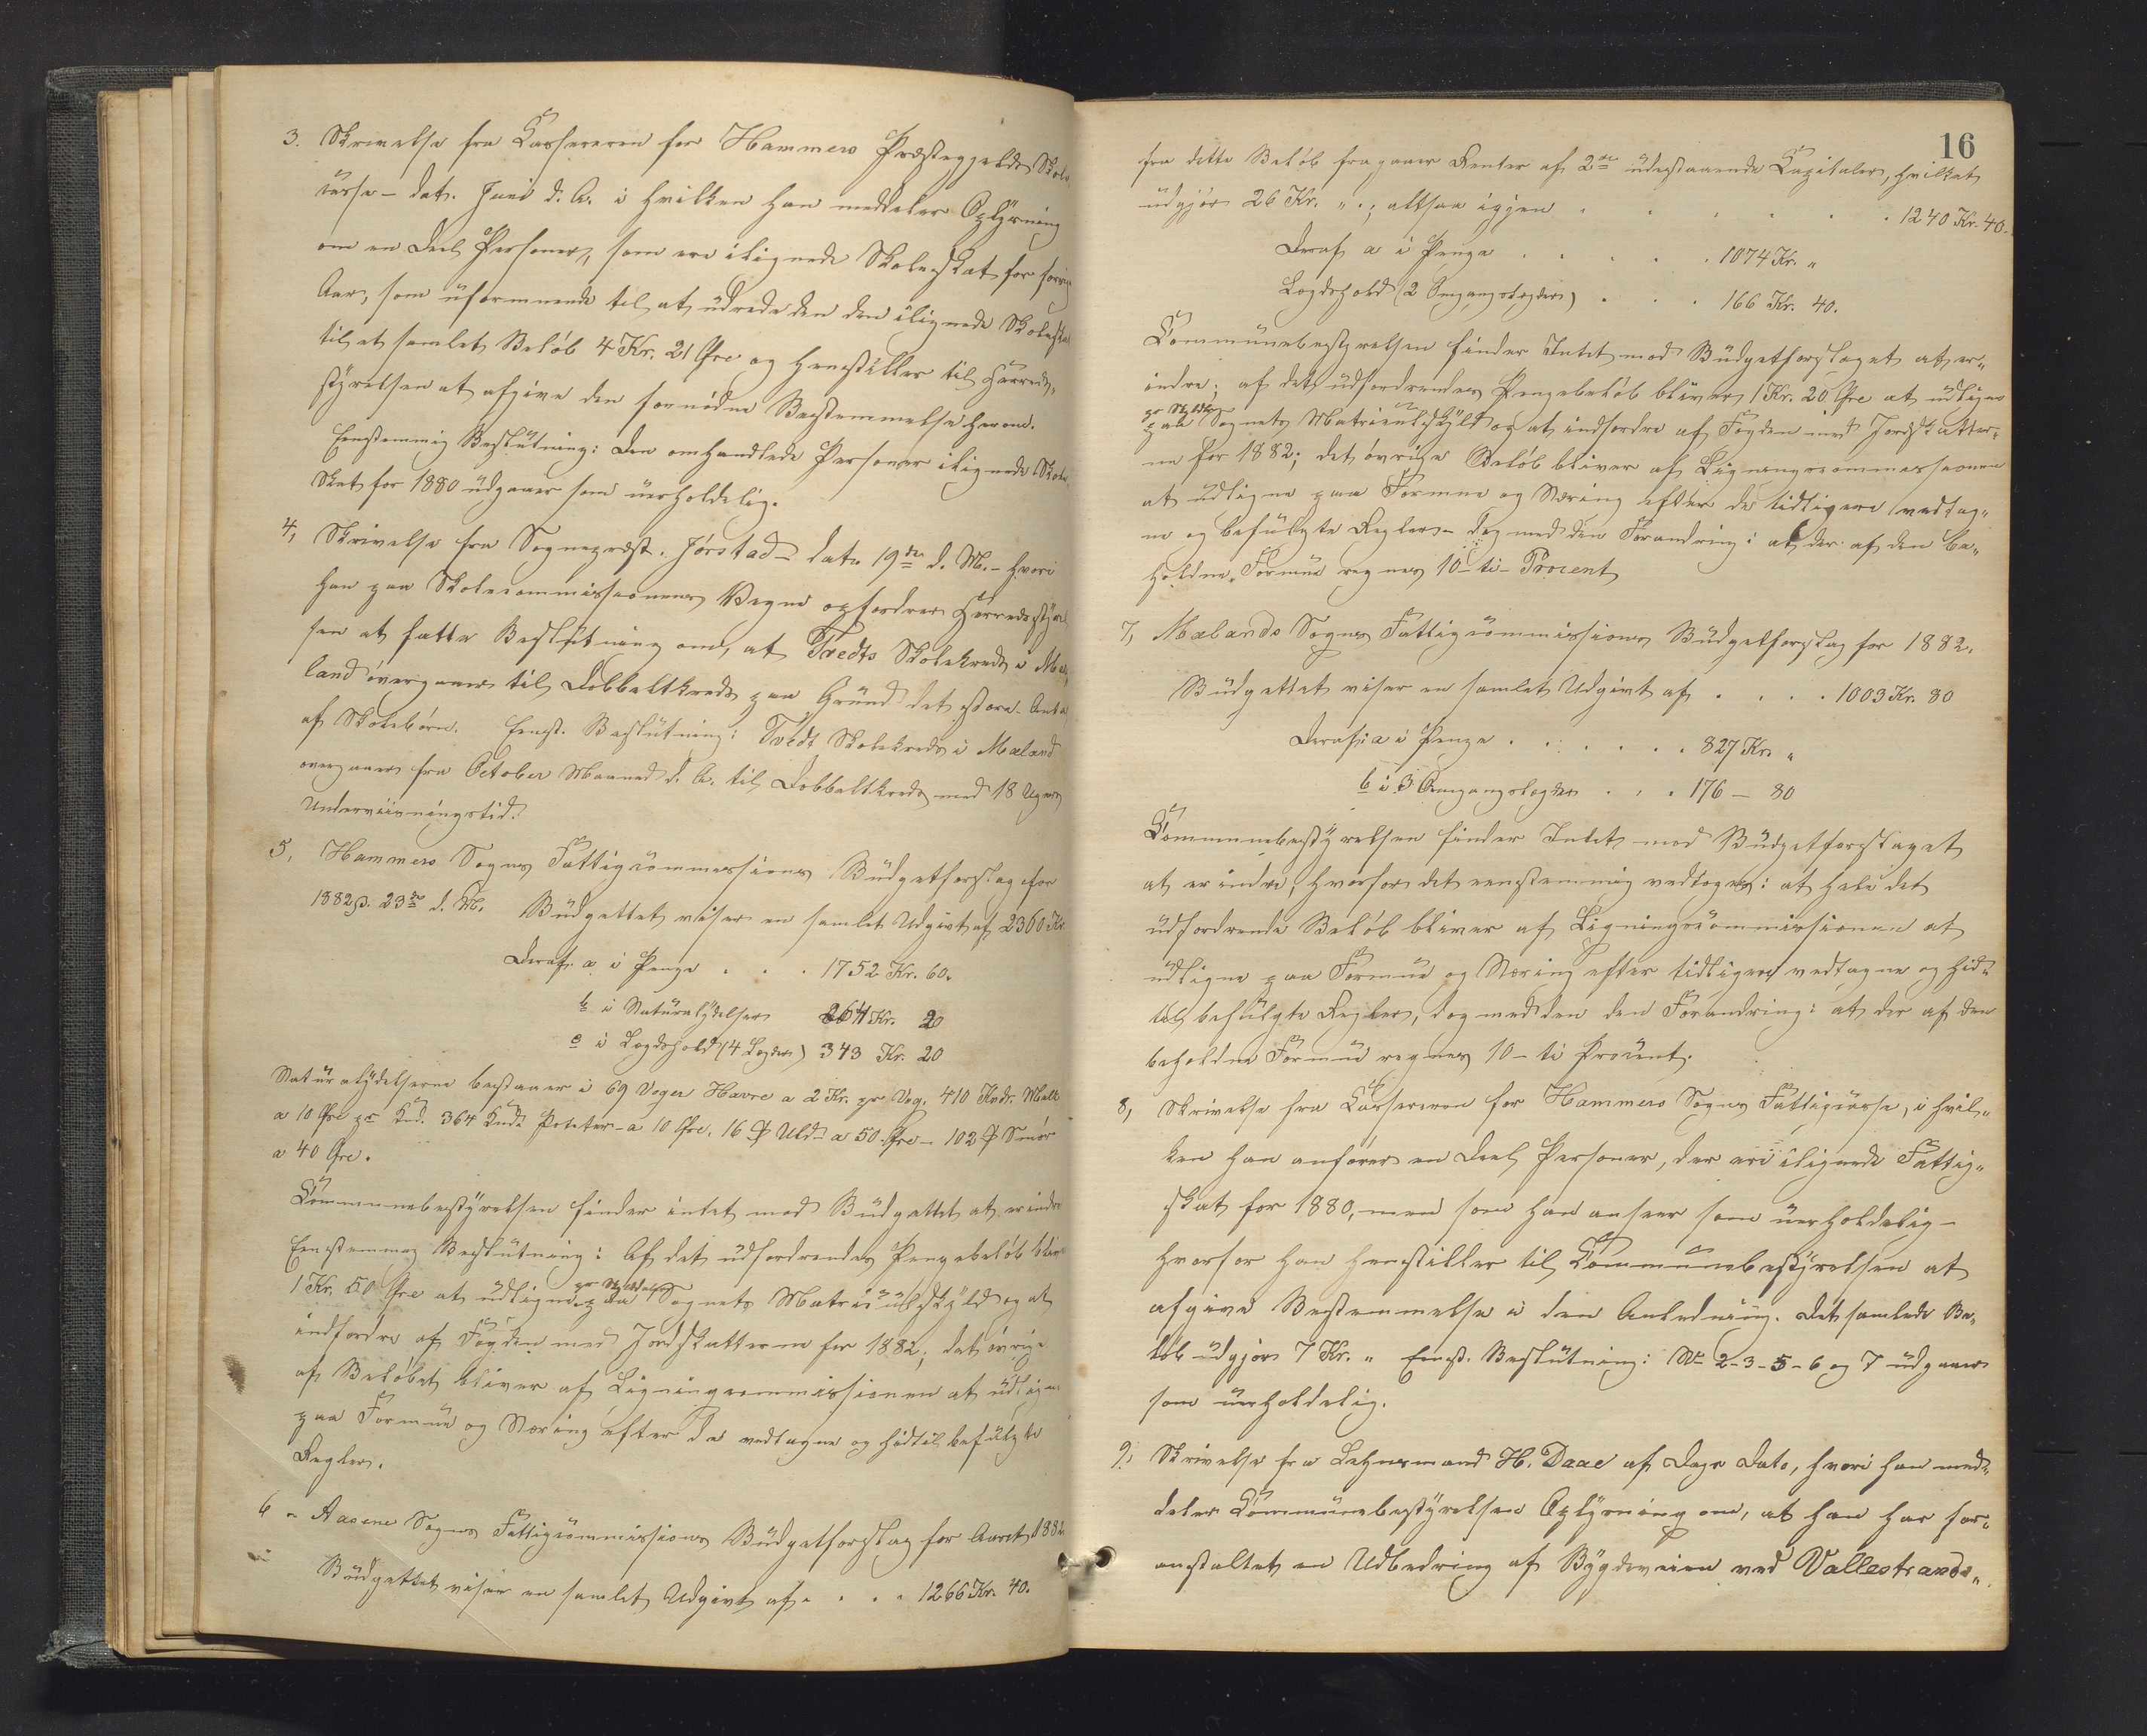 3. Skrivelse fra Cassereren for Hammers Præstegjelds Skole
casse – dat. Juni d. A. i hvilken han meddeler Oplysning
om en Deel Personer, som ere ilignede Skoleskat for forrig
Aar, som uformuende til at udrede den den ilignede Skoleskat
til et samlet Beløb 4 Kr. 21 Øre og henstiller til Herreds„
styrelsen at afgive den fornødne Bestemmelse herom.
Eenstemmig Beslutning: Den omhandlede Personer ilignede Skole„
Skat for 1880 udgaaer som uerholdelig.
4, Skrivelse fra Sognepræst Jørstad – dat. 19de d. M. – hvori
han paa Skolecommissionens Vegne opfordrer Herredsstyrel
sen at fatte Beslutning om, at Tvedts Skolekreds i Mæ„
land overgaaer til Dobbeltkreds paa Grund det store Antal
af Skolebørn. Eenst. Beslutning: Tvedt Skolekreds i Mæland
overgaaer fra October Maaned d. A. til Dobbeltkreds med 18 Ugers
Underviisningstid.
5, Hammers Sogns Fattigcommissions Budgetforslag for
1882 d. 23de d. M. Budgettet viser en samlet Udgivt af 2360 Kr
Deraf: a i Penge . . . 1752 Kr. 60.
b i Naturalydelser 264 Kr. 20
c i Lægdshold (4 Lægder) 343 Kr. 20
Naturalydelserne bestaaer i 69 Voger Havre a 2 Kr. pr Vog. 410 Kndr. Melk
a 10 Øre pr Knd. 364 Kndr Poteter – a 10 Øre. 16 ℔ Uld – a 50 Øre – 102 ℔ Smør
a 40 Øre.
Communebestyrelsen finder intet mod Budgettet at erindre
Eenstemmig Beslutning: Af det udfordrendes Pengebeløb bliver
pr Skylddaler
1 Kr. 50 Øre at udligne paa Sognets Matriculskyld og at
indfordre af Fogden med Jordskatterne for 1882; det øvrige
af Beløbet bliver af Ligningcommissionen at udligne
paa Formue og Næring efter de vedtagne og hidtil befulgte
Regler.
6 – Aasene Sogns Fattigcommissions Budgetforslag for Aaret 1882
Budgettet viser en samlet Udgivt af . . . 1266 Kr. 40.
16
fra dette Beløb fragaaer Renter af 2de udestaaende Capitaler, hvilket
udgjør 26 Kr. „ ; altsaa igjen . . . . . . . 1240 Kr. 40.
Deraf a i Penge . . . . . 1074 Kr. „
Lægdshold (2 Omgangslægder) . . . 166 Kr. 40.
Communebestyrelsen finder Intet mod Budgetforslaget at er„
indre; af det udfordrendes Pengebeløb bliver 1 Kr. 20 Øre at udligne
pr Skylddlr
paa Sognets Matriculskyld og at indfordre af Fogden med Jordskatter„
ne for 1882; det øvrige Beløb bliver af Ligningscommissionen
at udligne paa Formue og Næring efter de tidligere vedtag„
ne og befulgte Regler – dog med den Forandring: at der af den be„
holdne Formue regnes 10 – ti – Procent
7, Mælands Sogns Fattigcommissions Budgetforslag for 1882.
Budgettet viser en samlet Udgivt af . . . . 1003 Kr. 80
Deraf: a i Penge . . . . . . . 827 Kr. „
b i 3 Omgangslægder . . . 176 – 80
Communebestyrelsen finder Intet mod Budgetforslaget
at erindre, hvorfor det eenstemmig vedtoges: at hele det
udfordrende Beløb bliver af Ligningscommissionen at
udligne paa Formue og Næring efter tidligere vedtagne og hid„
til befulgte Regler, dog med den den Forandring: at der af den
beholdne Formue regnes 10 – ti Procent.
8, Skrivelse fra Cassereren for Hammers Sogns Fattigcasse, i hvil„
ken han anfører en Deel Personer, der ere ilignede Fattig„
skat for 1880, men som han anseer som uerholdelig –
hvorfor han henstiller til Communebestyrelsen at
afgive Bestemmelse i den Anledning. Det samlede Be„
løb udgjør 7 Kr. „ Eenst. Beslutning: No 2 – 3 – 5 – 6 og 7 udgaaer
som uerholdelig.
9, Skrivelse fra Lehnsmand H. Daae af Dags Dato, hvori han med„
deler Communebestyrelsen Oplysning om, at han har for„
anstaltet en Udbedring af Bygdeveien ved Vallestrands„